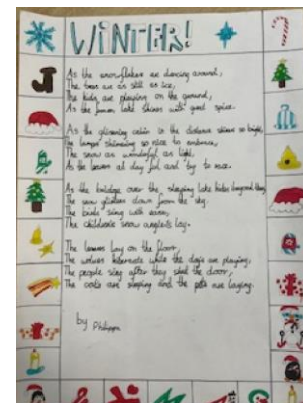 WINTER!
As the snowflakes are dancing around,
The trees are as still as ice,
The kids are playing on the ground,
As the lake shines with good spice.
As the glistening cabin in the distance shines so bright,
The lamps shimmering so nice to
The snow as wonderful as light,
As the leaves all day fall and try to race.
As the bridge over the sleeping lake
The snow glistens down from the sky.
The birds sing with
The childrens snow angels lay.
The leaves lay on the floor,
The wolves hibernate while the dogs are playing,
The people sing after they shut the door,
The cats are sleeping and the pets are laying.
by Philippa